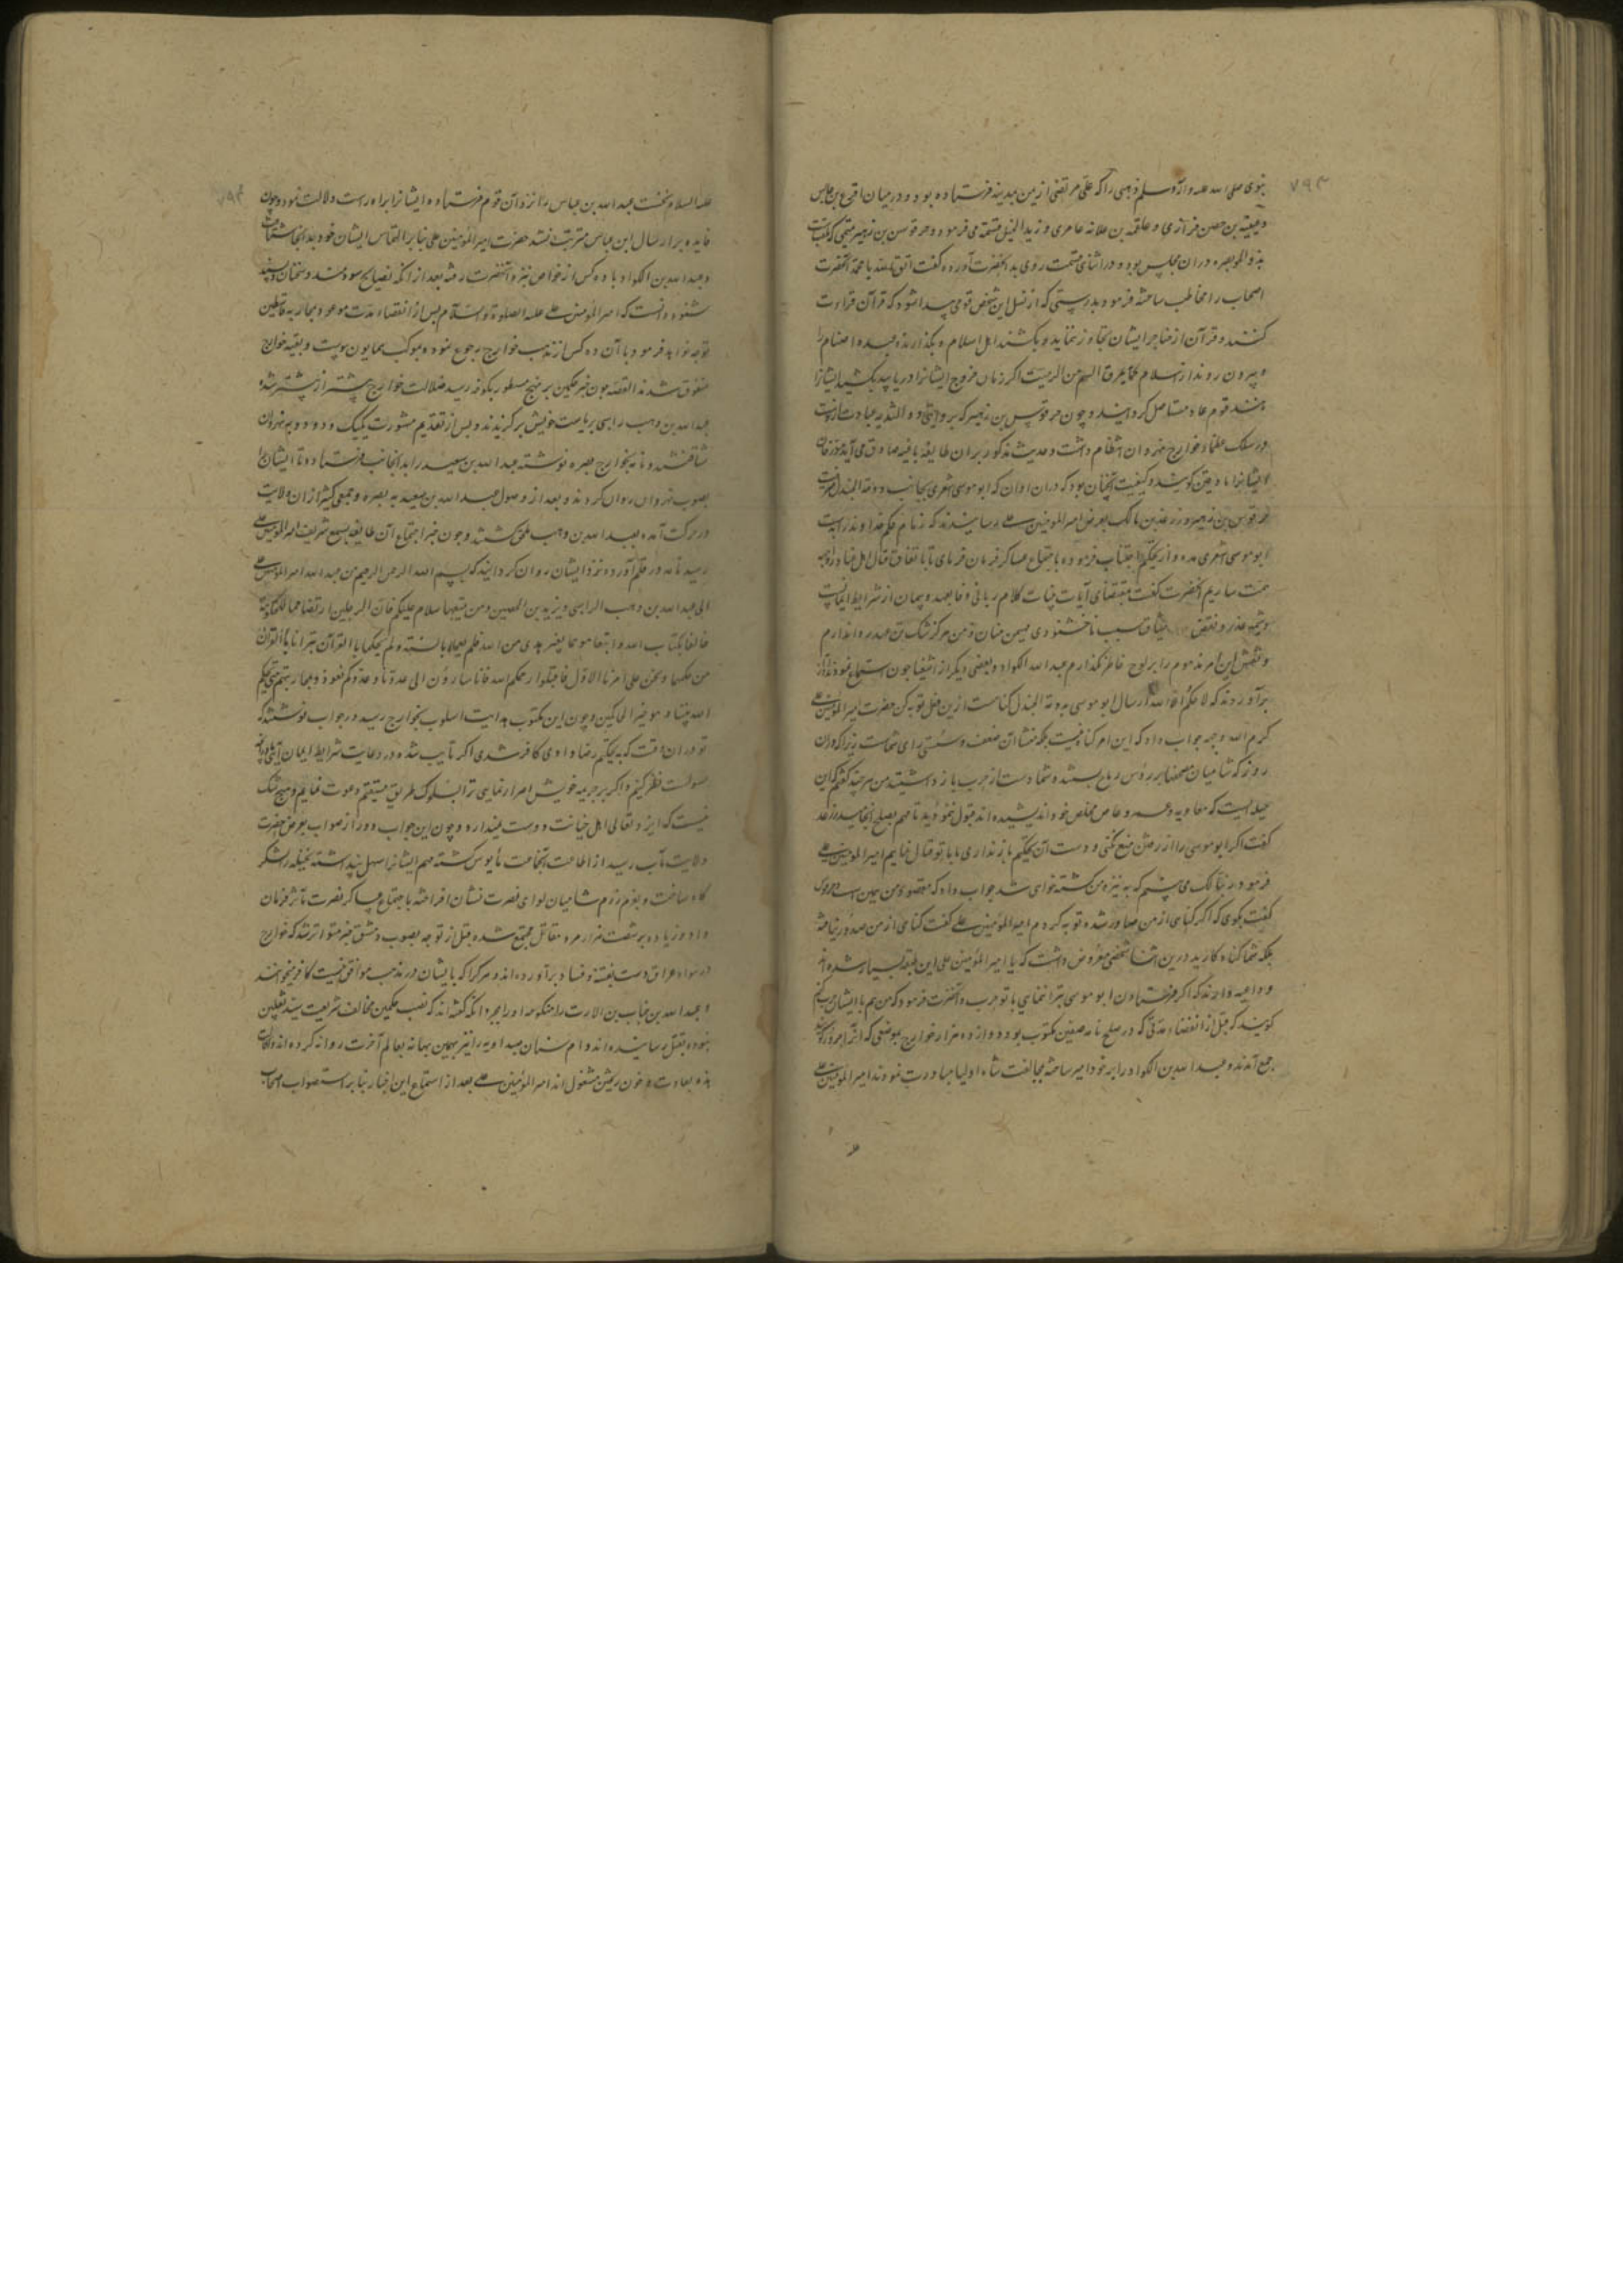 ۷۹۳
نبوی صلی الله علیه وآله وسلم ذهبی را که علی مرتضی از یمن بمدینه فرستاده بود در میان اقرع بن حابس
وعیینه بن حصن فزاری و علقمه بن علاثه عامری و زید الخیل قسمت می فرمود و حرقوص بن زهیر تمیمی که ملقبست
بذو الخویصره دران مجلس بود و در اثنای قسمت روی بد آنحضرت آورده گفت اتق الله یا محمد آنحضرت
اصحاب را مخاطب ساخته فرمود بدرستی که از نسل این شخص قومی پیدا شود که قرآن قراءت
کنند و قرآن از حناجر ایشان تجاوز ننماید و بکشند اهل اسلام و بگذارند عبده اصنام را
و بیرون روند از اسلام کما یمرق السهم من الرمیت اگر زمان خروج ایشانرا دریابید بکشید ایشانرا
مانند قوم عاد مستاصل گردانید و چون حرقوص بن زهیر که بروایتی ذو الثدیه عبارت ازوست
در سلک عظماء خوارج نهروان انتظام داشت و حدیث مذکور بران طایفه باغیه صادق می آید مورخان
ایشانرا مارقین گویند و کیفیت آنچنان بود که دران اوان که ابو موسی اشعری بجانب دومة الجندل میرفت
حرقوص بن زهیر و زرعه بن مالک بعرض امیر المؤمنین علی رسانیدند که زمام حکم خداوند راست
ابو موسی اشعری مده و از تحکیم اجتناب فرموده باجتماع عساکر فرمان فرمای تا باتفاق قتال اهل عناد را وجه
همت سازیم آنحضرت گفت بمقتضای آیات بینات کلام ربانی وفا بعهد و پیمان از شرایط ایمانست
و شیمه غدر و نقض میثاق سبب ناخشنودی مهیمن منان و من هرگز شکستن عهد روا ندارم
و نقش این امر مذموم را بر لوح خاطر نگذارم عبد الله الکواء و بعضی دیگر از اشقیا چون استماع نمودند آواز
برآوردند که لا حکم الا لله ارسال ابو موسی بدومة الجندل گناهست ازین فعل توبه کن حضرت امیر المؤمنین علی
کرم الله وجهه جواب داد که این امر گناه نیست بلکه منشاء آن ضعف و سستی رای شماست زیرا که دران
روز که شامیان مصحفها بر رؤس رماح بستند شما دست از حرب باز داشتید من هر چند گفتم که این
حیله ایست که معاویه و عمرو عاص مخلص خود اندیشیده اند قبول ننمودید تا مهم بصلح انجامید زرعه
گفت اگر ابو موسی را از رفتن منع نکنی و دست از تحکیم باز نداری ما با تو قتال نماییم امیر المؤمنین علی
فرمود در خاک می بینم که به نیزه من کشته خواهی شد جواب داد که مقصود من همین است حرقوص
گفت بگوی که اگر گناهی از من صادر شده توبه کردم امیر المؤمنین علی گفت گناهی از من صدور نیافته
بلکه شما گناه کارید درین اثنا شخصی معروض داشت که یا امیر المؤمنین علی این طبقه بسیار شده اند
و داعیه دارند که اگر فرستادن ابو موسی ترا نمایی با تو حرب و آنحضرت فرمود که من هم با ایشان حرب کنم
گویند که قبل از انقضاء مدتی که در صلح نامه صفین مکتوب بود دوازده هزار خوارج بموضعی که آنرا حروراء گویند
جمع آمدند و عبد الله بن الکواء را بر خود امیر ساخته بمخالفت شاه اولیا مبادرت نمودند امیر المؤمنین علی
۷۹۴
علیه السلام نخست عبد الله بن عباس را نزد آن قوم فرستاده ایشانرا براه راست دلالت نمود و چون
فایده بر ارسال ابن عباس مترتب نشد حضرت امیر المؤمنین علی بنا بر التماس ایشان خود بدانجا شتافت
و عبد الله بن الکواء با ده کس از خواص نزد آنحضرت رفته بعد از آنکه نصایح سودمند و سخنان دلپسند
شنود دانست که امیر المؤمنین علی علیه الصلوة والسلام پس از انقضاء مدت موعود بمحاربه قاسطین
توجه خواهد فرمود با آن ده کس از مذهب خوارج رجوع نموده بموکب همایون پیوست و بقیه خوارج
متفرق شدند القصه چون خبر حکمین بر نهج مسطور بکوفه رسید ضلالت خوارج بیشتر از پیشتر شد
عبد الله بن وهب راسبی بریاست خویش برگزیدند و پس از تقدیم مشورت یکیک و دو دو به نهروان
شتافتند و نامه بخوارج بصره نوشته عبد الله بن سعید را بدانجانب فرستادند تا ایشانرا
بصوب نهروان روان گرداند و بعد از وصول عبد الله بن سعید به بصره جمعی کثیر از آن ولایت
در حرکت آمده بعبد الله بن وهب ملحق گشتند و چون خبر اجتماع آن طایفه بسمع شریف امیر المؤمنین علی
رسید نامه در قلم آورده نزد ایشان روان گردانید که بسم الله الرحمن الرحیم من عبد الله امیر المؤمنین علی
الی عبد الله بن وهب الراسبی ویزید بن الحصین ومن تبعهما سلام علیکم فان الرجلین ارتضا هما للحکومة
خالفا بکتاب الله واتبعا هواهما بغیر هدی من الله فلم یعملا بالسنة ولم یحکما بالقرآن تبرانا بالقران
من حکمهما ونحن علی امرنا الاول فاقبلوا رحمکم الله فانا سائرون الی عدونا وعدوکم لنعود لمحاربتهم حتی یحکم
الله بیننا وهو خیر الحاکمین و چون این مکتوب هدایت اسلوب بخوارج رسید در جواب نوشتند که
تو در ان وقت که به تحکیم رضا دادی کافر شدی اگر تایب شده در رعایت شرایط ایمان
مسولت نظر کنیم و اگر بر جریمه خویش اصرار نمایی ترا بسلوک طریق مستقیم دعوت نماییم و هیچ شک
نیست که ایزد تعالی اهل خیانت دوست نمیدارد و چون این جواب دور از صواب بعرض حضرت
ولایت مآب رسید از اطاعت آنجماعت مأیوس گشته مهم ایشانرا سهل پنداشته نخیله را لشکر
گاه ساخت و بعزم رزم شامیان لوای نصرت نشان افراخته باجتماع عساکر نصرت مآثر فرمان
داد و زیاده بر شصت هزار مرد مقاتل مجتمع شده قبل از توجه بصوب دمشق خبر متواتر شد که خوارج
در سواد عراق دست بفتنه و فساد برآورده اند و هر کرا که با ایشان در مذهب موافق نیست کافر میخوانند
و عبد الله بن خباب بن الارت را با منکوحه او را بمجرد آنکه گفته اند که نصب حکمین مخالف شریعت سید ثقلین
نبوده بقتل رسانیده اند و ام سنان صیداویه را نیز بهمین بهانه بعالم آخرت روانه کرده اند و اکنون
بعادت خون ریختن مشغول اند امیر المؤمنین علی بعد از استماع این اخبار بنا بر استصواب اصحاب